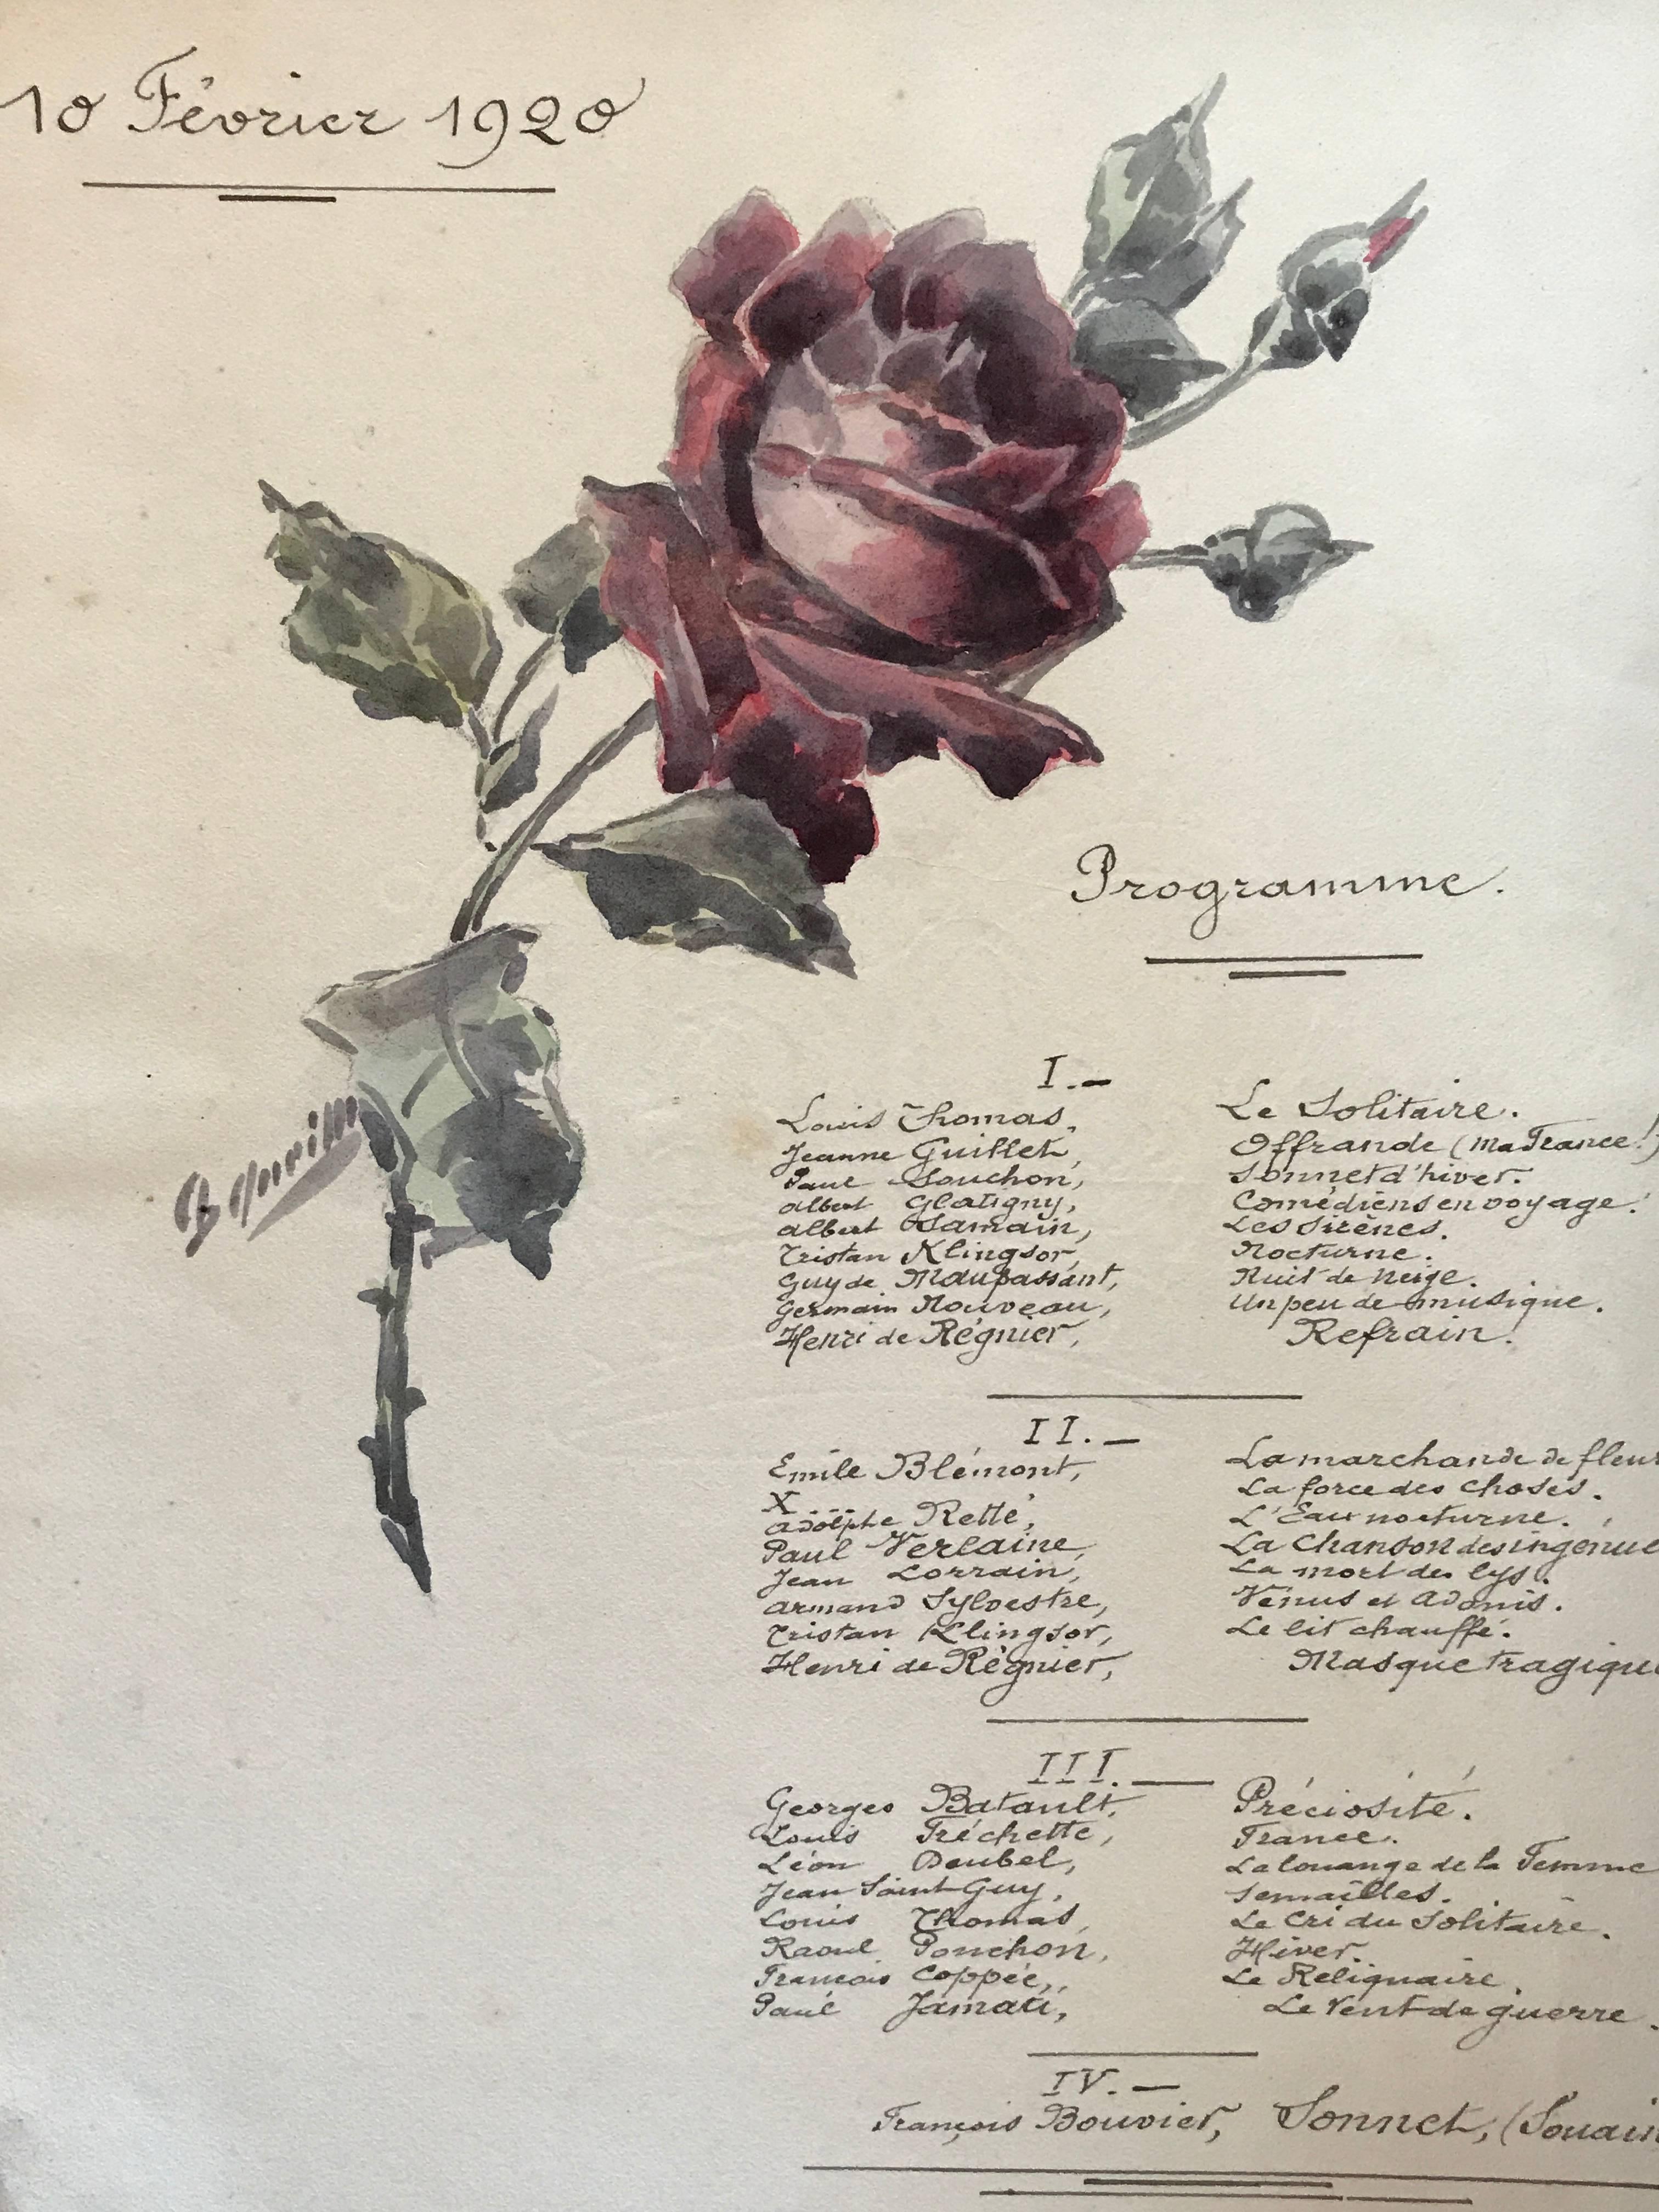 10 Février 1920
Programme.
I.—
Louis Thomas, Le Solitaire.
Jeanne Guillet, Offrande (Ma France!)
Paul Souchon, Sonnet d'hiver.
Albert Glatigny, Comédiens en voyage.
Albert Samain, Les Sirènes.
Tristan Klingsor, Nocturne.
Guy de Maupassant, Nuit de neige.
Germain Nouveau, Un peu de musique.
Henri de Régnier, Refrain.
II.—
Emile Blémont, La marchande de fleur
X.... La force des choses.
Adolphe Retté, L'Eau nocturne.
Paul Verlaine, La Chanson des ingénue
Jean Lorrain, La mort des lys.
Armand Sylvestre, Vénus et Adonis.
Tristan Klingsor, Le lit chauffé.
Henri de Régnier, Masque tragique
III.—
Georges Batault, Préciosité.
Louis Fréchette, France.
Léon Deubel, La louange de la Femme
Jean Saint Guy, Semailles.
Louis Thomas, Le Cri du Solitaire.
Raoul Ponchon, Hiver.
François Coppée, Le Reliquaire.
Paul Jamati, Le Vent de guerre.
IV.—
François Bouvier, Sonnet, (Souain